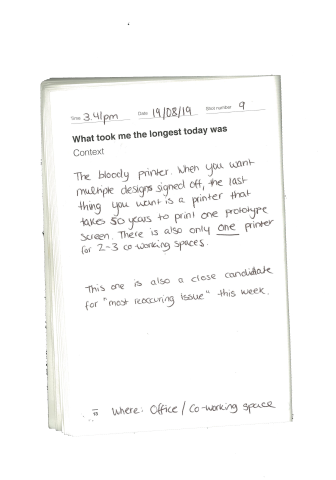 Time 3.41pm Date 19/08/19 Sheet number 9
What took me the longest today was
Context
The bloody printer. When you want
multiple designs signed off, the last
thing you want is a printer that
takes 50 years to print one prototype
screen. There is also only one printer
for 2-3 co-working spaces.
This one is also a close candidate
for "most reoccuring issue" this week.
Where: Office / Co-working space